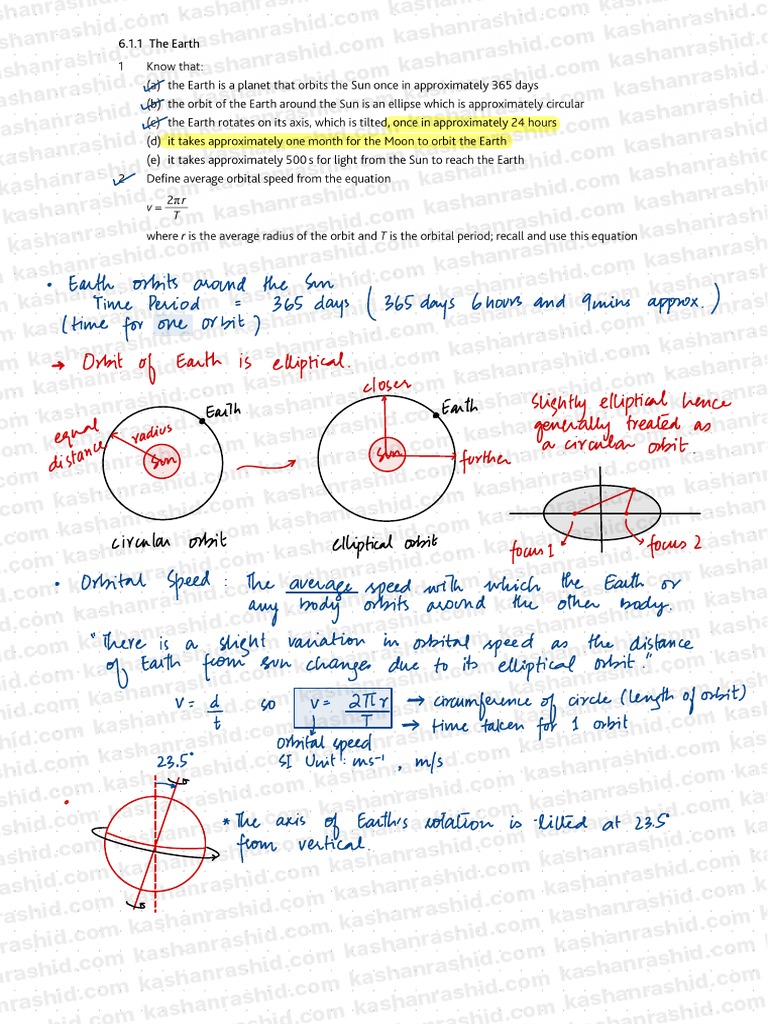 6.1.1 The Earth
1 Know that:
(a) the Earth is a planet that orbits the Sun once in approximately 365 days
(b) the orbit of the Earth around the Sun is an ellipse which is approximately circular
(c) the Earth rotates on its axis, which is tilted, once in approximately 24 hours
(d) it takes approximately one month for the Moon to orbit the Earth
(e) it takes approximately 500 s for light from the Sun to reach the Earth
2 Define average orbital speed from the equation
v = 2πr / T
where r is the average radius of the orbit and T is the orbital period; recall and use this equation
• Earth orbits around the Sun
Time Period = 365 days (365 days 6 hours and 9 mins approx.)
(time for one orbit)
→ Orbit of Earth is elliptical.
equal distance
radius
Sun
Earth
circular orbit
closer
Earth
Sun
further
elliptical orbit
Slightly elliptical hence
generally treated as
a circular orbit.
focus 1
focus 2
• Orbital Speed : The average speed with which the Earth or
any body orbits around the other body.
"There is a slight variation in orbital speed as the distance
of Earth from sun changes due to its elliptical orbit."
v = d/t so v = 2πr / T → circumference of circle (length of orbit)
→ time taken for 1 orbit
orbital speed
SI Unit : ms⁻¹ , m/s
23.5°
* The axis of Earth's rotation is tilted at 23.5°
from vertical.
kashanrashid.com